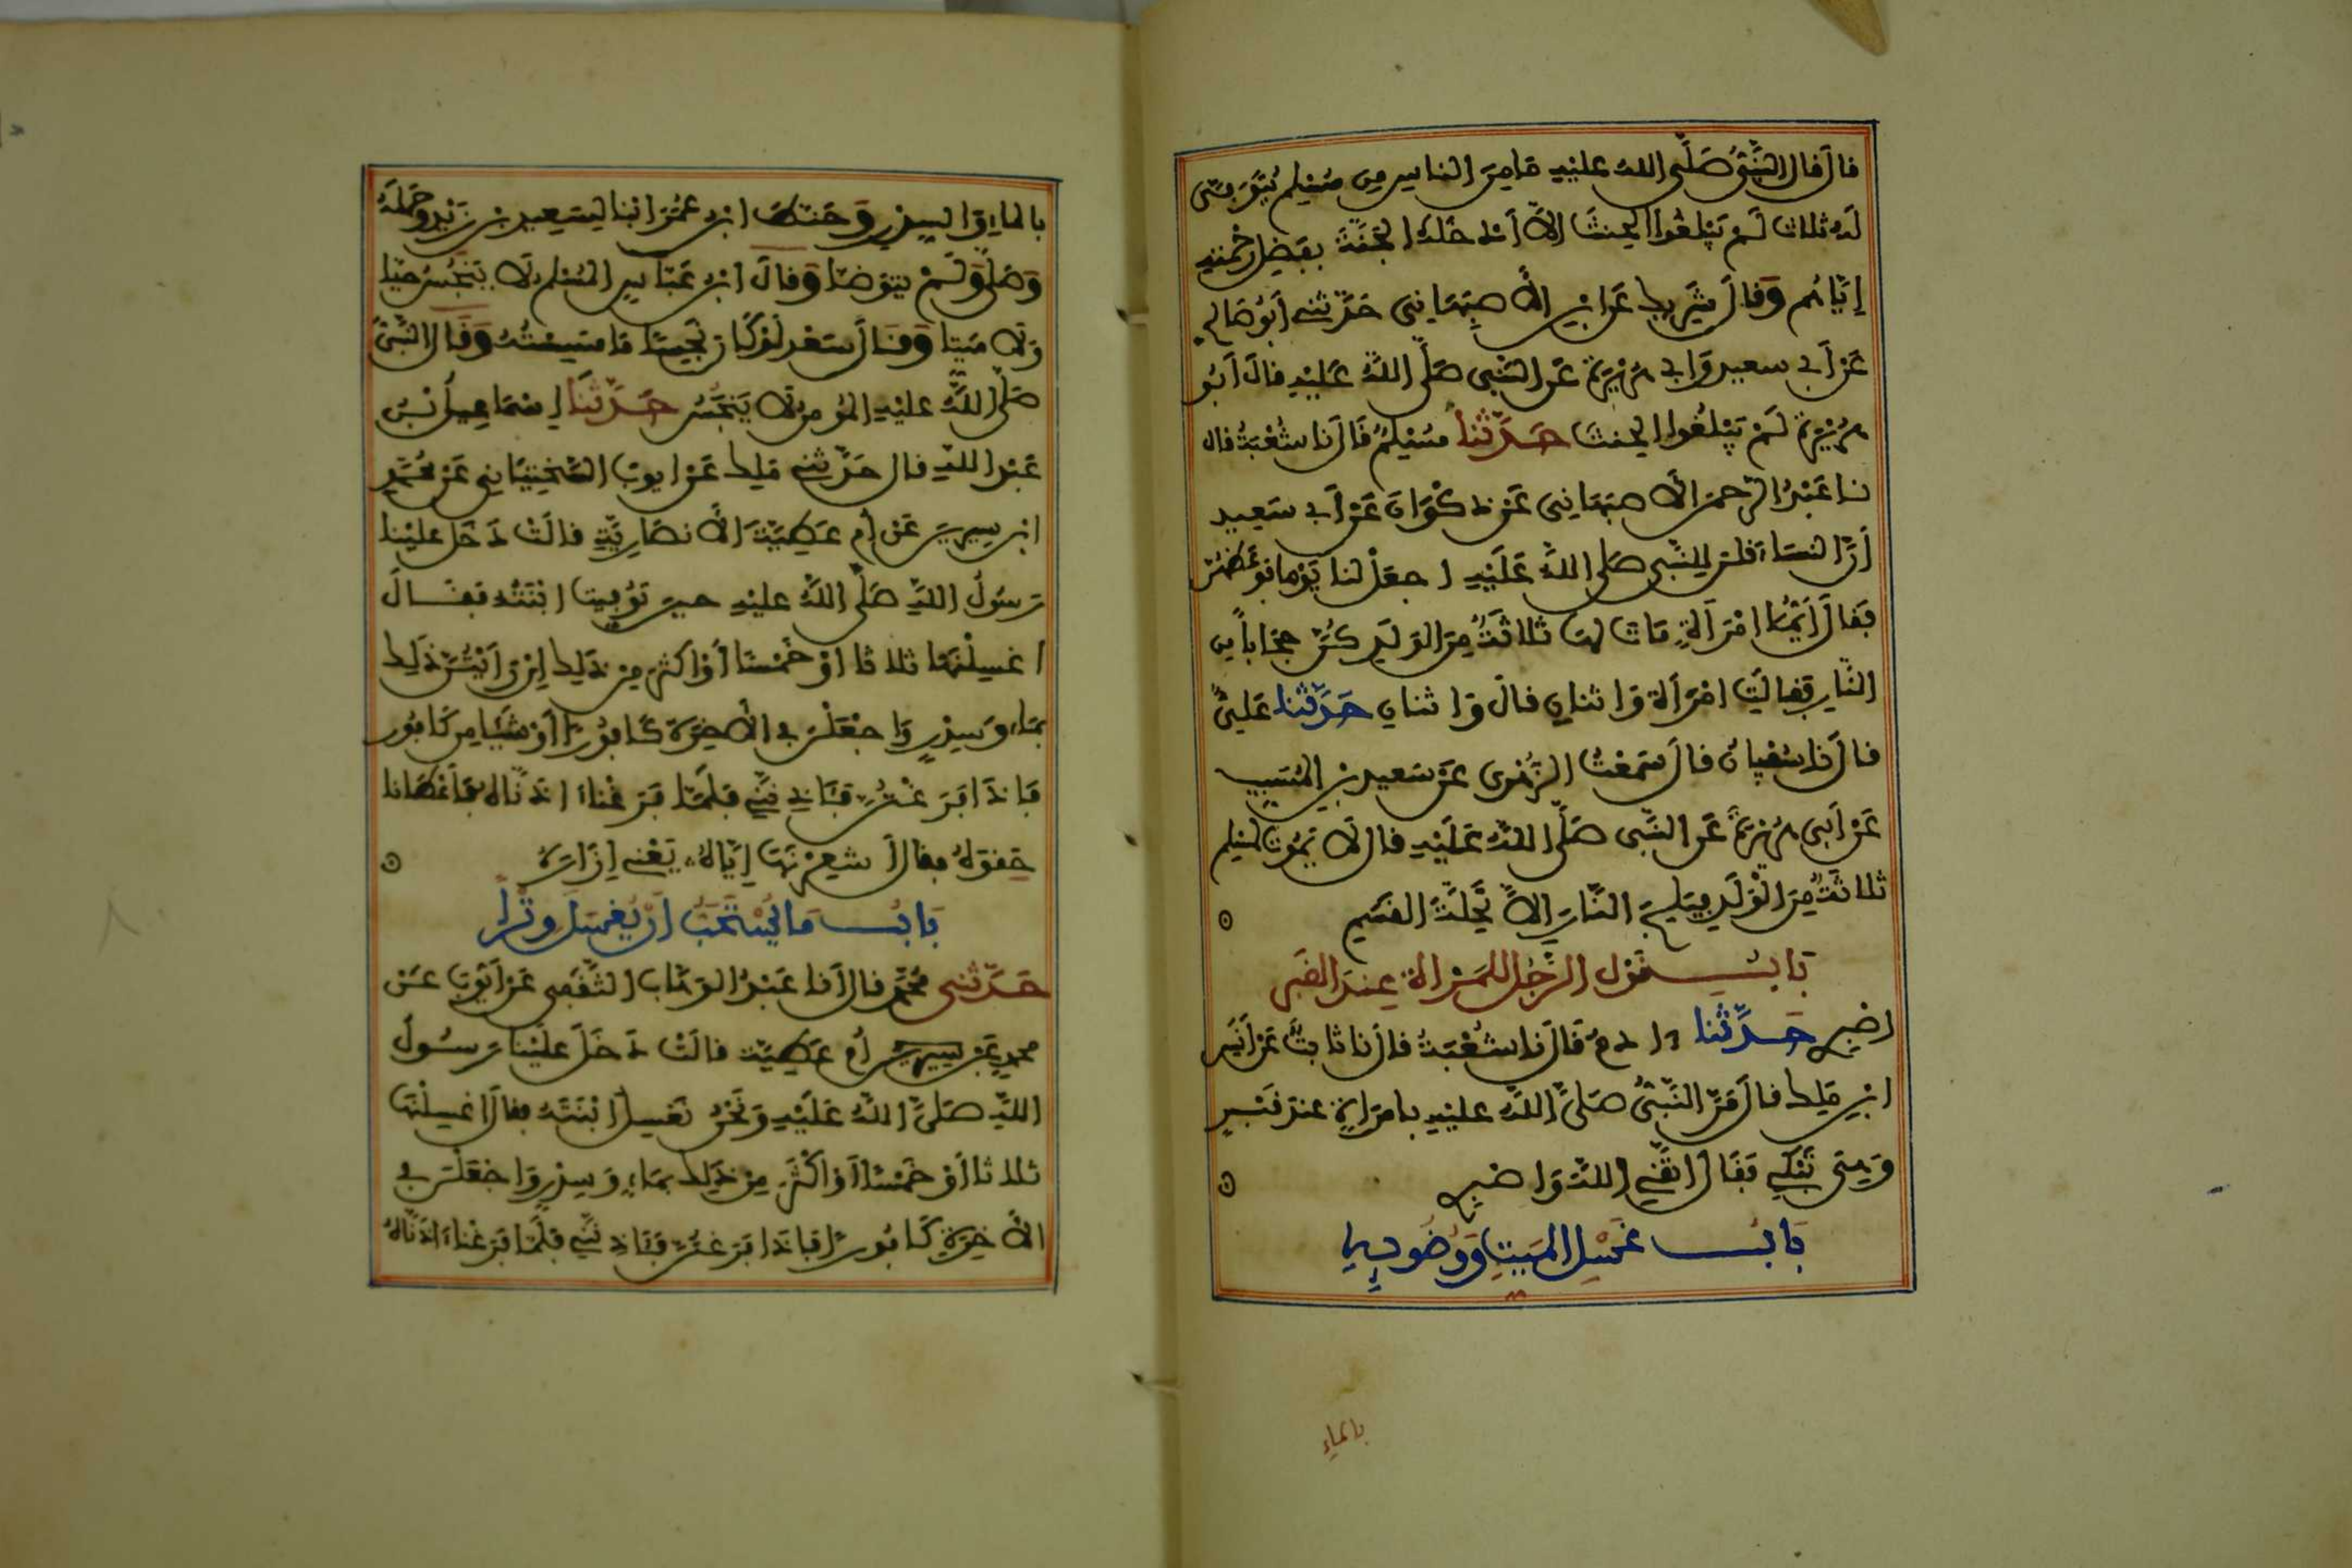 قال قال النَّبِيُّ صَلَّى اللهُ عليْهِ مَا مِنَ الناسِ مِن مُسْلِمٍ يُتَوَفى
لَهُ ثلاث لَمْ يَبْلغُوا الحِنثَ إلاَّ أدخَلَهُ الجنَّةَ بفضلِ رحْمتِهِ
إيَّاهُم وَقال شَرِيك عَنِ ابنِ الأَصبَهَانِي حَدَّثني أبُو صَالِح
عَنْ أبي سعيدٍ وَأبي هُرَيْرَةَ عَنِ النَّبِي صَلَّى اللهُ عَليْهِ قال أبُو
هُرَيْرَةَ لَمْ يَبْلغُوا الحِنثَ حَدَّثنا مُسْلِمٌ قَال نا شُعْبَةُ قال
نا عَبْدُ الرَّحمنِ الأَصبَهَانِي عَنْ ذكْوَانَ عَنْ أبي سَعِيد
أَنَّ النسَاءَ قلن لِلنَّبِي صَلى اللهُ عَلَيْهِ اجعَلْ لنا يَوْما فوعَظهُنَّ
فقال أَيُّمَا امْرَأةٍ مَات لهَا ثلاثَةٌ مِنَ الوَلَدِ كُنَّ حِجَاباً مِن
النَّارِ فقالَتِ امْرَأة وَاثنانِ قال وَاثنانِ حَدَّثنا عَلِيٌّ
قال نا سُفيانُ قال سَمِعْتُ الزُّهْرِي عَنْ سَعيدِ بْنِ المُسَيِّبِ
عَنْ أبي هُرَيْرَةَ عَنِ النَّبِي صَلَّى اللهُ عَلَيْهِ قال لاَ يَمُوتُ لمسْلِم
ثلاثَةٌ مِنَ الْوَلَدِ فيَلِجَ النَّارَ إلاَّ تَحِلَّةَ القَسَمِ
بَابُ قَوْلِ الرَّجُلِ لِلمَرْأةِ عِندَ القَبْرِ
اصْبِرِي حَدَّثنا ءادمُ قَال نا شُعْبَةُ قال نا ثابتٌ عَنْ أَنَسِ
ابْنِ مَلِك قال مَرَّ النَّبِيُّ صَلَّى اللهُ عليْهِ بامرَأةٍ عندَ قَبْرٍ
وَهِيَ تَبْكِي فَقَال اتَّقِي اللهَ وَاصْبِرِي
بَابُ غَسْلِ المَيِّتِ وَوُضُوءِهِ
بالماءِ
بالماءِ وَالسِّدْرِ وَحَنَّطَ ابنُ عُمَرَ ابْنا لِسَعِيدِ بْنِ زَيْدٍ وَحَمَلَهُ
وَصَلَّى وَلَمْ يتوَضأ وَقالَ ابنُ عَبَّاسٍ المُسْلِمُ لاَ يَنْجُسُ حَيّا
وَلاَ مَيِّتا وَقَال سَعْد لَوْ كَانَ نَجِسًا مَا مَسِسْتُهُ وَقَال النَّبِيُّ
صَلَّى اللهُ عليْهِ المُؤمِنُ لاَ يَنْجُسُ حَدَّثنَا إسْمَاعِيلُ بْنُ
عَبْدِ اللهِ قال حَدَّثني مَلِك عَنْ أيوبَ السَّخْتِيَانِي عَنْ مُحَمَّدِ
ابْنِ سِيرِينَ عَنْ أُمِّ عَطِيَّةَ الأَنصَارِيَّةِ قالَتْ دَخَل عليْنا
رَسُولُ اللهِ صَلَّى اللهُ عليْهِ حِينَ تُوُفِّيَتِ ابْنَتُهُ فَقَالَ
اغسِلْنَهَا ثلاثا أوْ خَمْسًا أوْ أكثرَ مِنْ ذَلِك إنْ رَأَيْتُنَّ ذَلِك
بِمَاءٍ وَسِدْرٍ وَاجْعَلْنَ فِي الأَخِرَةِ كَافُورًا أوْ شَيْئا مِنْ كَافُور
فَإذَا فرَغْتُنَّ فَئَاذِنَّنِي فَلَمَّا فرَغْنَا ءاذَنَّاهُ فَأَعْطَانا
حِقوَهُ فقال أشعِرْنَهَا إيَّاهُ يَعْنِي إزَارَهُ
بَابُ مَا يُسْتَحَبُّ أَنْ يُغْسَلَ وِتْرًا
حَدَّثني مُحَمَّد قال أَنا عَبْدُ الوَهَّابِ الثَّقَفِي عَنْ أيُّوبَ عَنْ
محمدٍ عَنْ أُمِّ عَطِيَّةَ قالَتْ دَخَلَ عَلَيْنا رَسُولُ
اللهِ صَلَّى اللهُ عَلَيْهِ وَنَحْنُ نَغْسِلُ ابْنَتَهُ فقال اغسِلْنَهَا
ثلاثا أوْ خَمْسًا أوْ أكْثَرَ مِنْ ذَلِك بِمَاءٍ وَسِدْرٍ وَاجْعَلْنَ فِي
الأَخِرَةِ كَافُورًا فإذَا فرَغتُنَّ فَئَاذِنَّنِي فَلَمَّا فرَغْنَا ءاذَنَّاهُ